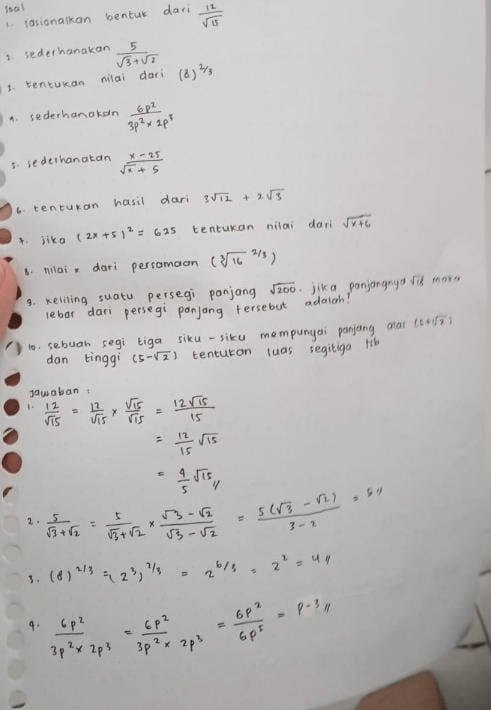 soal
1. rasionalkan bentuk dari 12/√15
2. sederhanakan 5/(√3+√2)
3. tentukan nilai dari (8)^2/3
4. sederhanakan 6p²/(3p² × 2p³)
5. sederhanakan (x-25)/(√x + 5)
6. tentukan hasil dari 3√12 + 2√3
7. jika (2x+5)² = 625 tentukan nilai dari √x+6
8. nilai x dari persamaan (³√16 ^2/3)
9. keliling suatu persegi panjang √200. jika panjangnya √18 maka
lebar dari persegi panjang tersebut adalah!
10. sebuah segi tiga siku - siku mempunyai panjang alas (5+√2)
dan tinggi (5-√2) tentukan luas segitiga tsb
Jawaban :
1. 12/√15 = 12/√15 × √15/√15 = 12√15/15
= 12/15 √15
= 4/5 √15 //
2. 5/(√3+√2) = 5/(√3+√2) × (√3-√2)/(√3-√2) = 5(√3 - √2)/(3-2) = 5 //
3. (8)^2/3 = (2³)^2/3 = 2^6/3 = 2² = 4 //
4. 6p²/(3p² × 2p³) = 6p²/(3p² × 2p³) = 6p²/6p⁵ = p-3 //